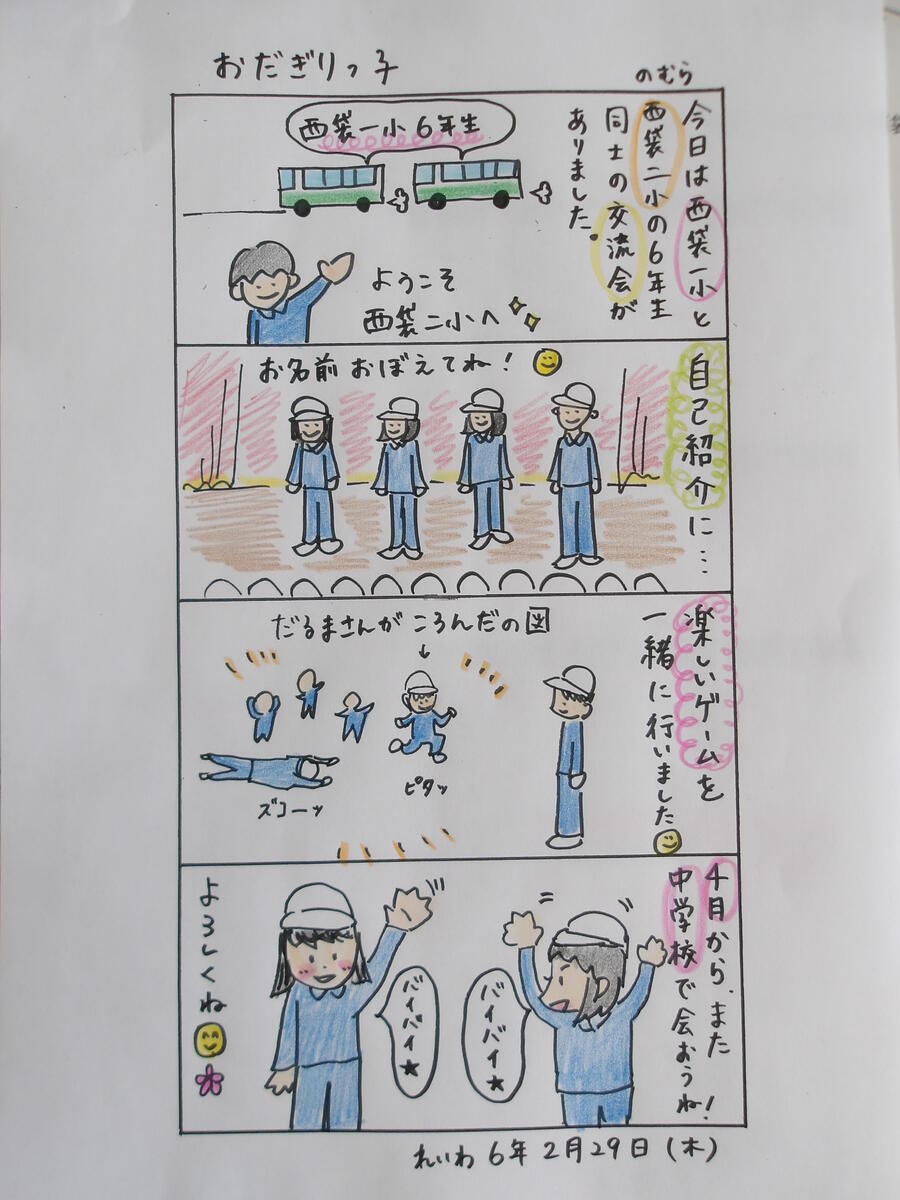 おだぎりっ子
のむら
今日は西袋一小と
西袋二小の6年生
同士の交流会が
ありました。
西袋一小6年生
ようこそ
西袋二小へ
自己紹介に…
お名前おぼえてね!
楽しいゲームを
一緒に行いました
だるまさんがころんだの図
↓
ピタッ
ズコーッ
4月から、また
中学校で会おうね!
バイバイ★
バイバイ★
よろしくね
れいわ6年2月29日(木)